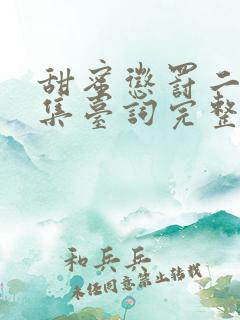 甜蜜懲罰二
集臺詞完整
和兵兵
未经同意禁止转载